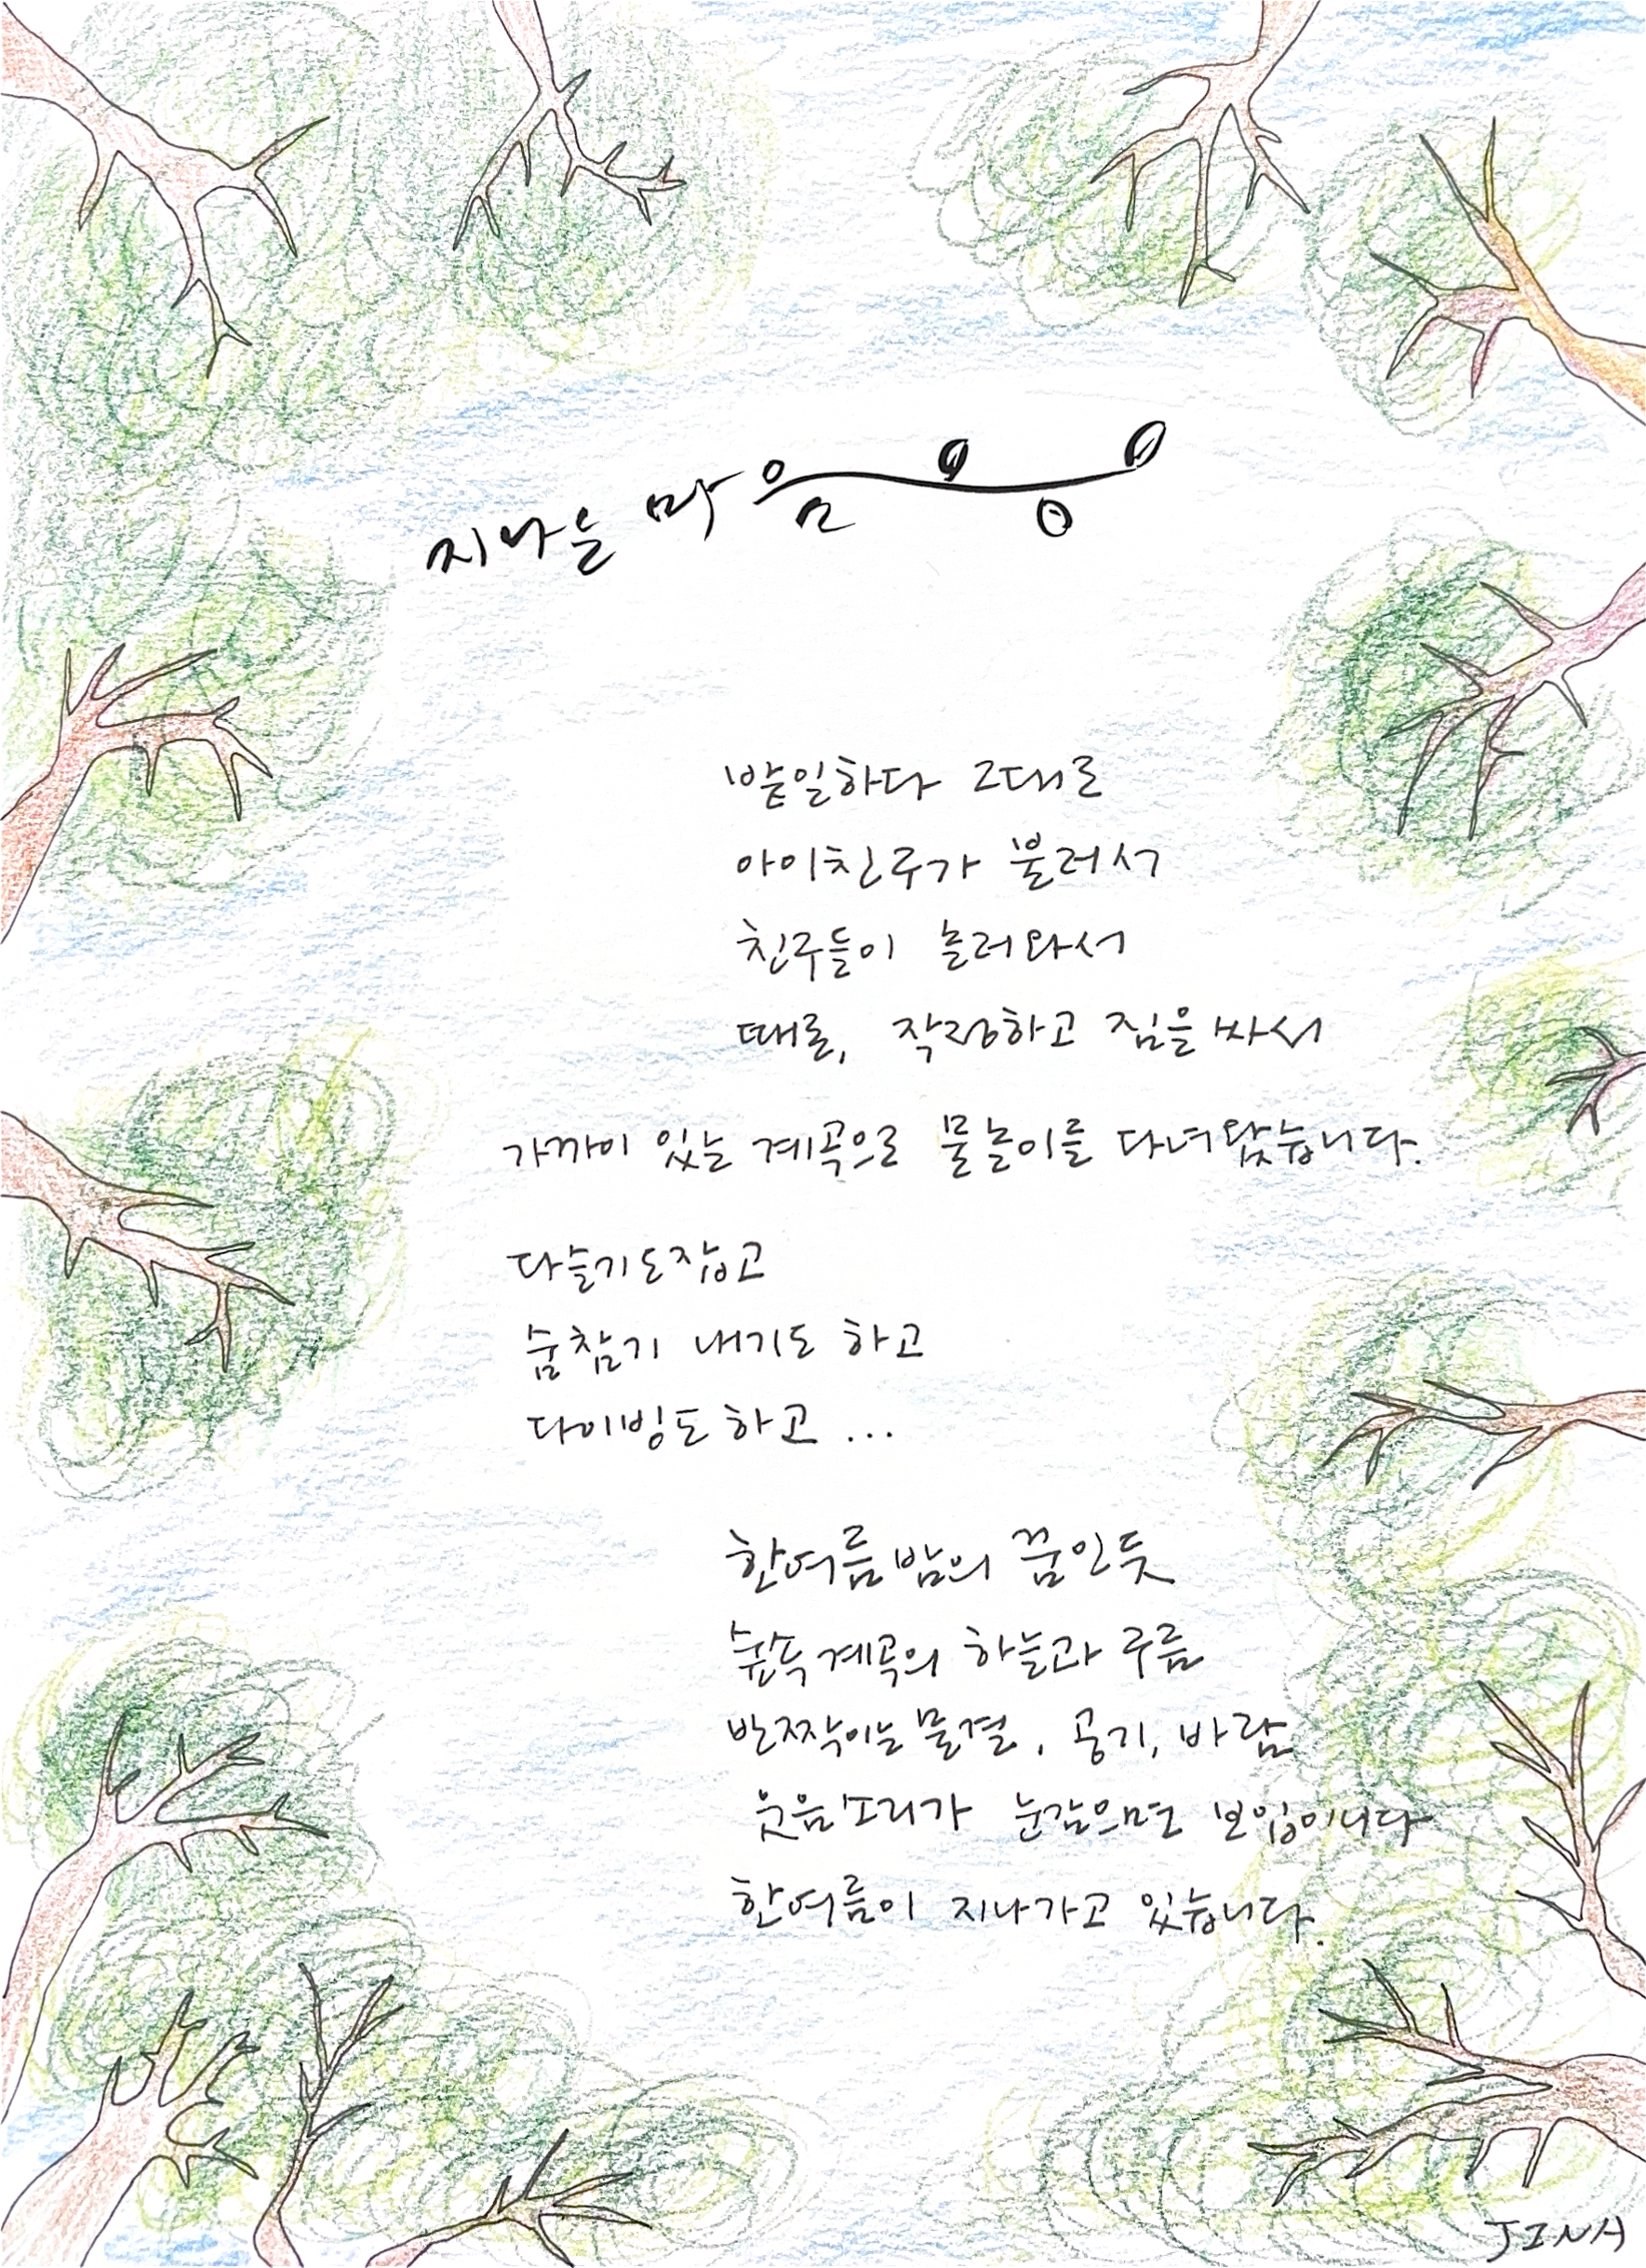 지나는 마음
밭일하다 그대로
아이친구가 불러서
친구들이 놀러와서
때로, 작정하고 짐을 싸서
가까이 있는 계곡으로 물놀이를 다녀왔습니다.
다슬기도잡고
숨참기 내기도 하고
다이빙도 하고 ...
한여름밤의 꿈인듯
숲속계곡의 하늘과 구름
반짝이는물결, 공기, 바람
웃음소리가 눈감으면 보입이니다
한여름이 지나가고 있습니다.
JINA